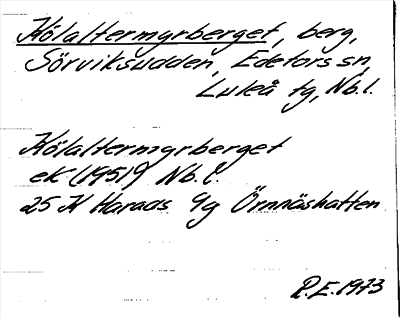 Kölaltermyrberget, berg,
Sörviksudden, Edefors sn,
Luleå tg, Nb.l.
Kölaltermyrberget
ek (1951) Nb.l.
25 K Harads 9g Örnnäshatten
P.E. 1973